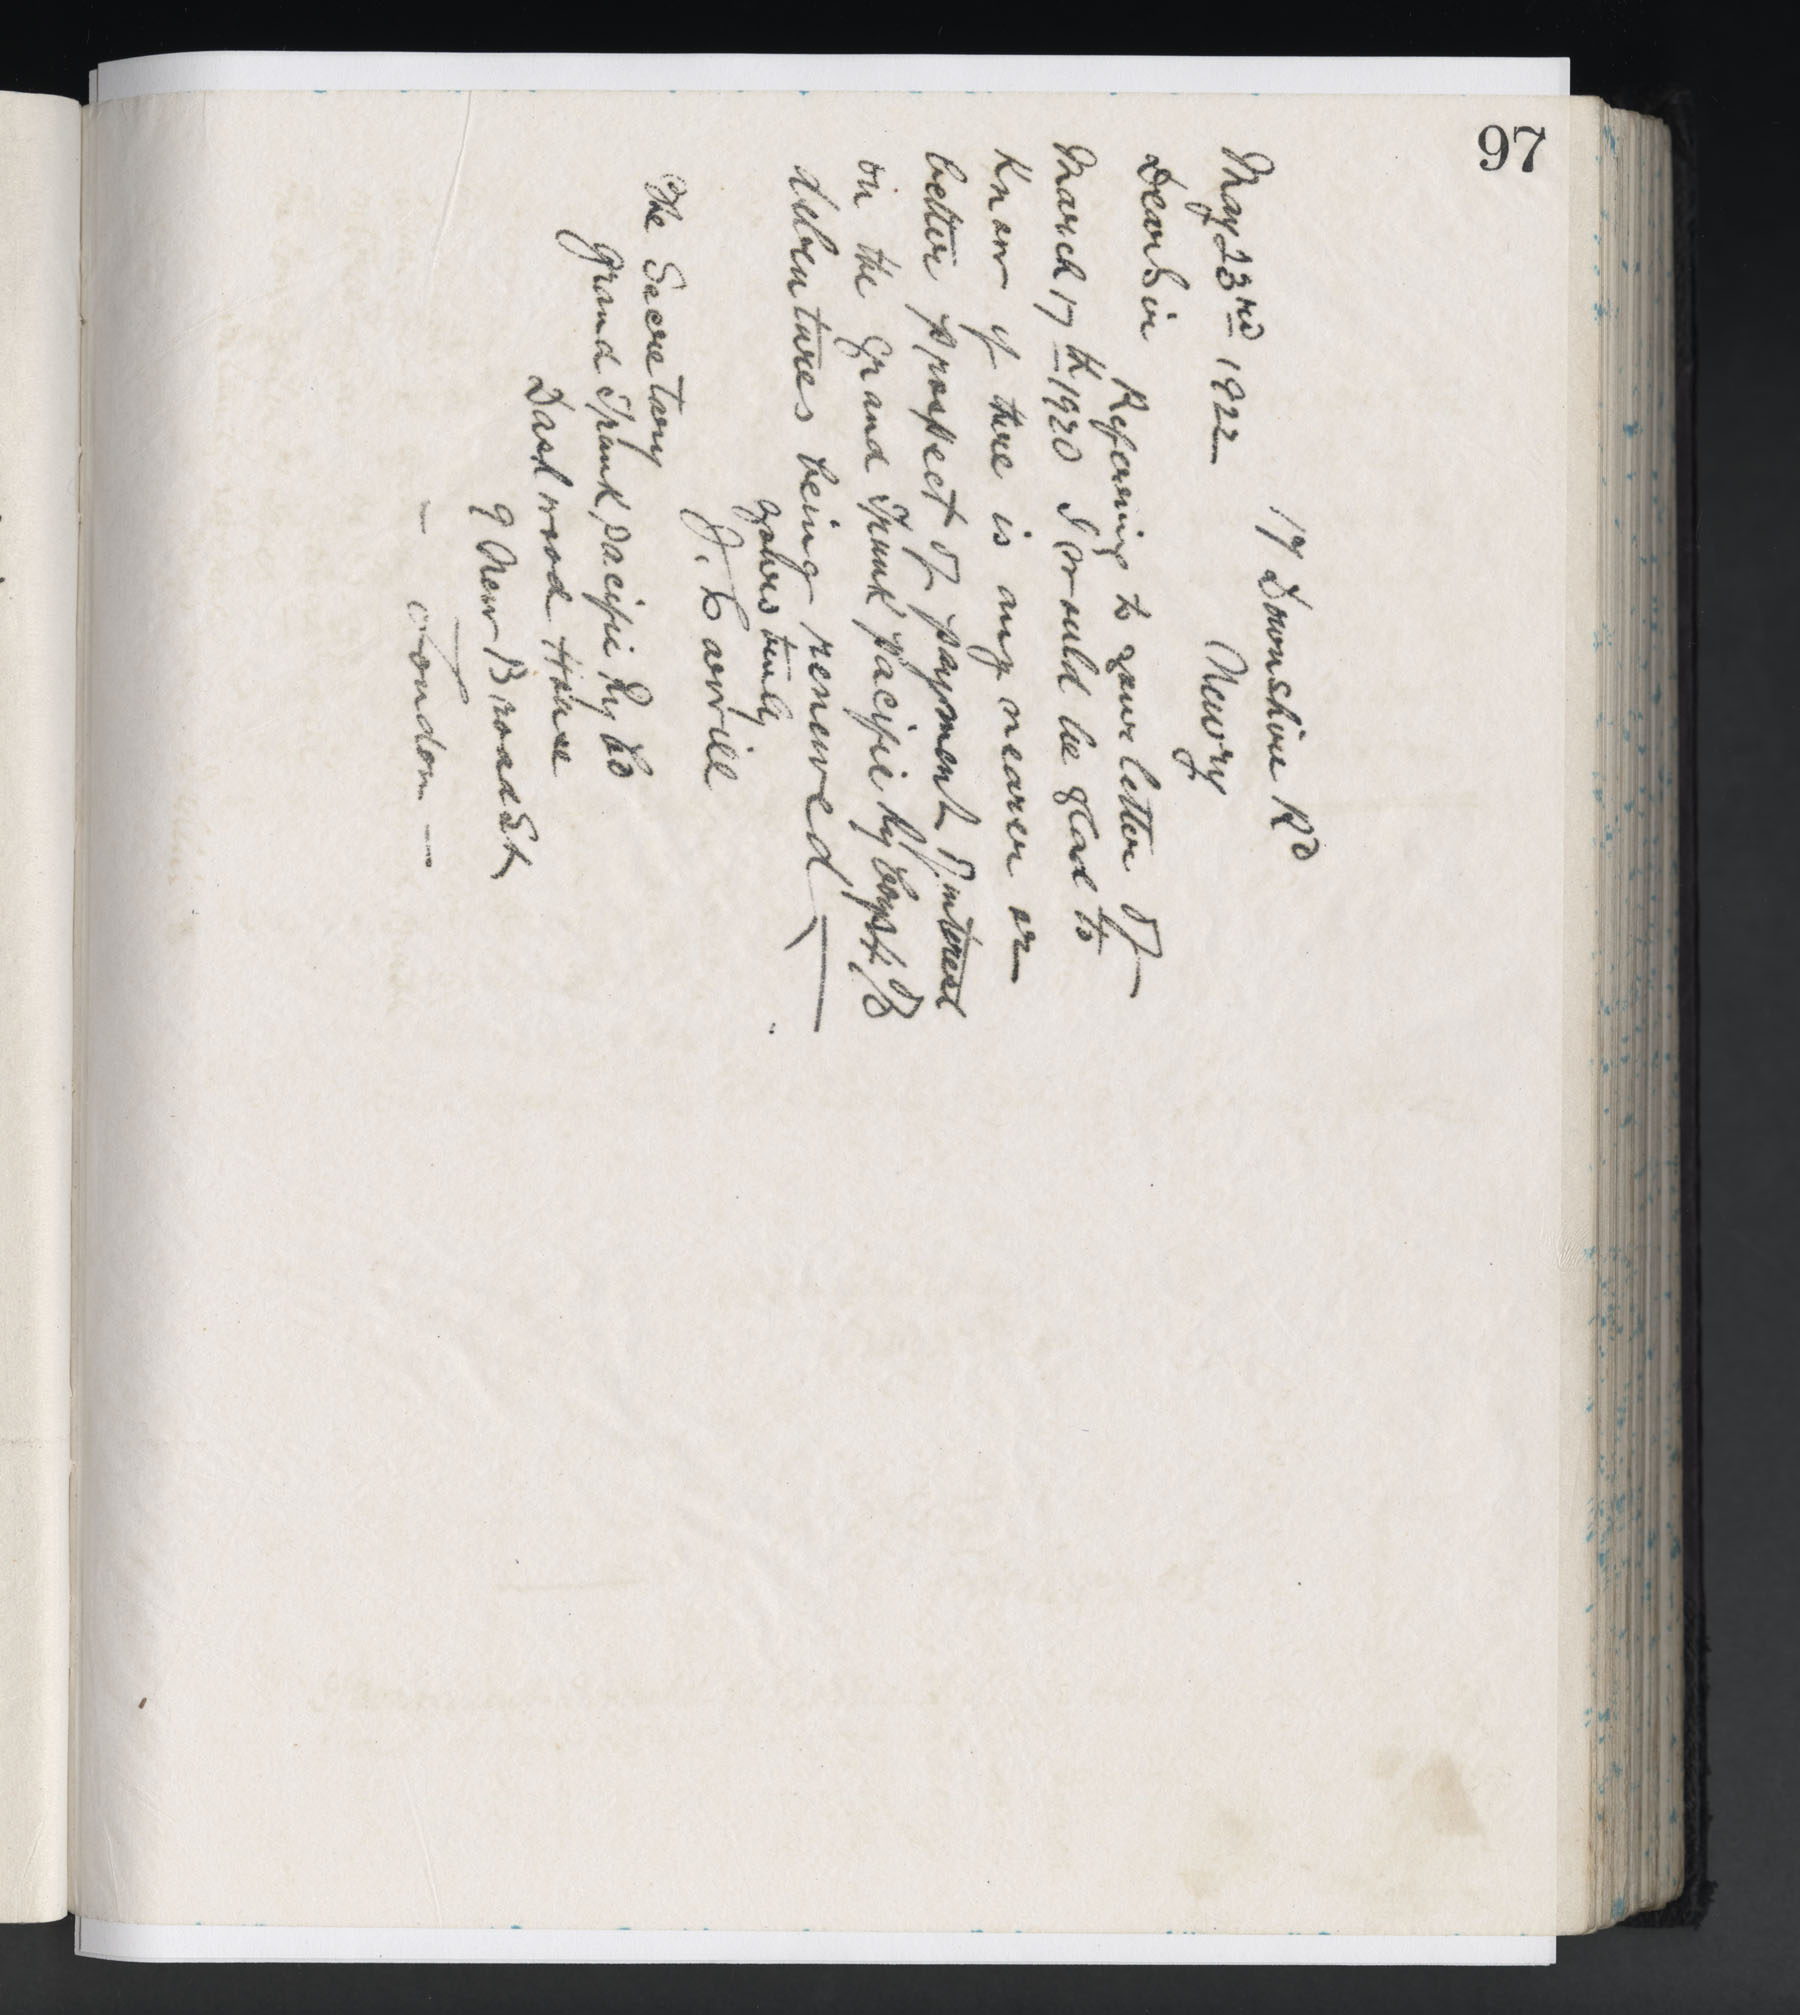 97
17 Downshire Rd
Newry
May 23rd 1922
Dear Sir
Referring to your letter of
March 17th 1920 I would be glad to
know if there is any nearer or
better prospect of payment of interest
on the Grand Trunk Pacific Ry
debentures being renewed
yours truly
J. Carvill
The Secretary
Grand Trunk Pacific Ry Co
Dashwood House
9 New Broad St
– London –